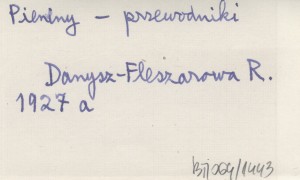 Pieniny – przewodniki
Danysz-Fleszarowa R.
1927 a